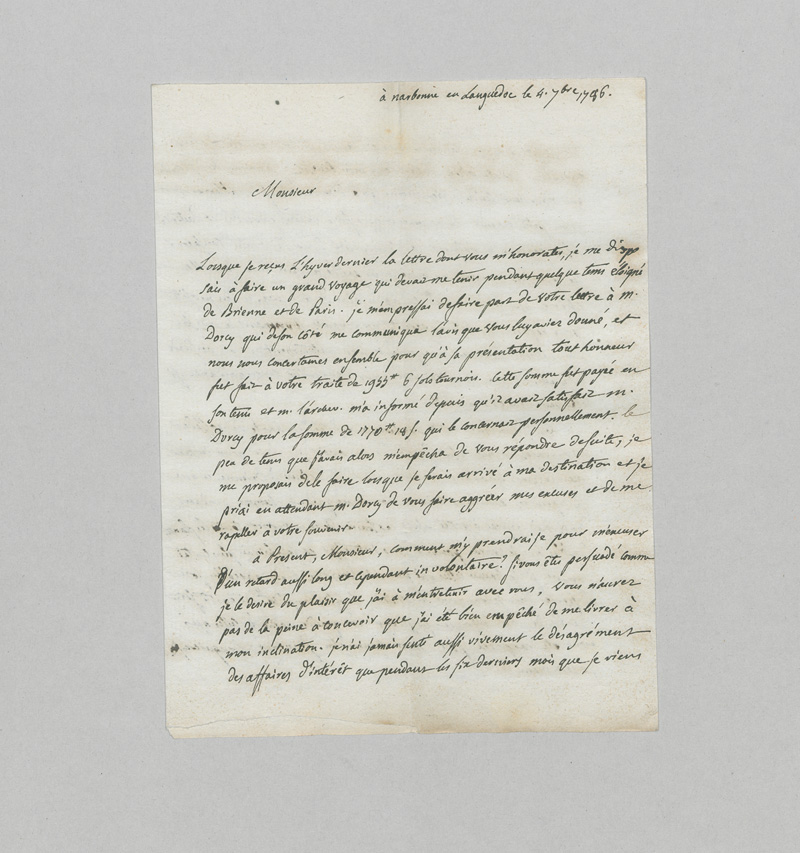 à narbonne en Languedoc le 4. 7bre 1786.
Monsieur
Lorsque je reçus L'hyver dernier la lettre dont vous m'honorates, je me dispo
sais à faire un grand voyage qui devait me tenir pendant quelque tems éloigné
de Brienne et de Paris. je m'empressai de faire part de votre lettre à m.
Dorcy qui de son côté me communiqua l'avis que vous luy aviez donné, et
nous nous concertames ensemble pour qu'à sa présentation tout honneur
fut fait à votre traite de 1933# 6 sols tournois. Cette somme fut payée en
son tems et m. l'archev. m'a informé depuis qu'il avait satisfait m.
Dorcy pour la somme de 1770# 18 s. qui le concernait personnellement. le
peu de tems que j'avais alors m'empêcha de vous répondre de suite, je
me proposais de le faire lorsque je serais arrivé à ma destination et je
priai en attendant m. Dorcy de vous faire aggréer mes excuses et de me
rapeller à votre souvenir.
à Present, Monsieur, comment m'y prendrai je pour m'excuser
D'un retard aussi long et cependant involontaire? si vous êtes persuadé comme
je le desire du plaisir que j'ai à m'entretenir avec vous, vous n'aurez
pas de la peine à concevoir que j'ai été bien empêché de me livrer à
mon inclination. je n'ai jamais senti aussi vivement le désagrément
des affaires d'intérêt que pendant les six derniers mois que je viens